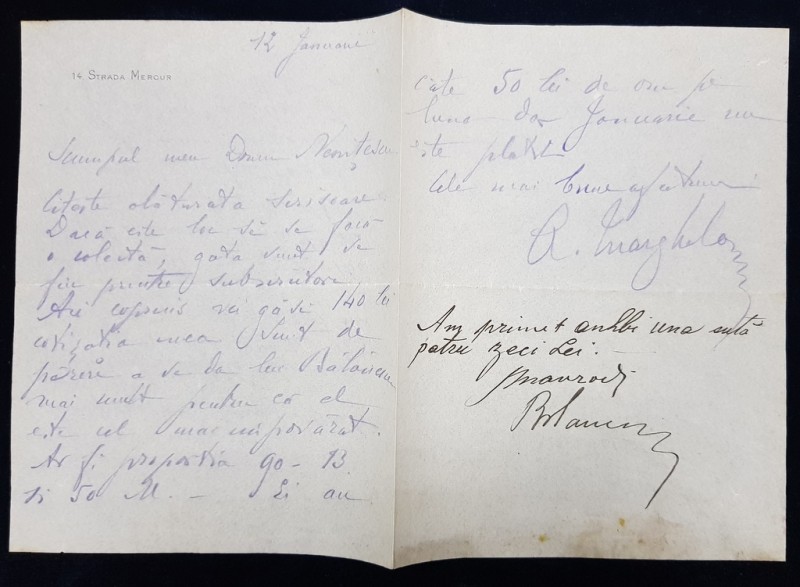 12 Januarie
14 STRADA MERCUR
Scumpul meu Domn
Citește alăturata scrisoare.
Dacă este loc să se facă
o colectă, gata sunt să
fiu printre subscriitori
Aci coprins vei găsi 140 lei
cotizația mea. Sunt de
părere a se da lui Bălănescu
mai mult pentru că el
este cel mai împovărat.
Ar fi proporția 90 - B
și 50 M. - Ei au
câte 50 lei de om pe
luna dar Januarie nu
este platit
Cele mai bune
A. Marghiloman
Am primit ambi una sută
patru zeci Lei. -
Mavrodi